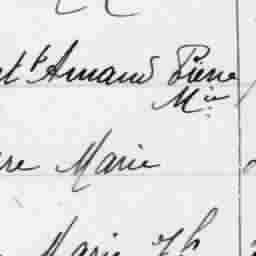 et St Amand Pierre
Mie
re Marie
Marie Th